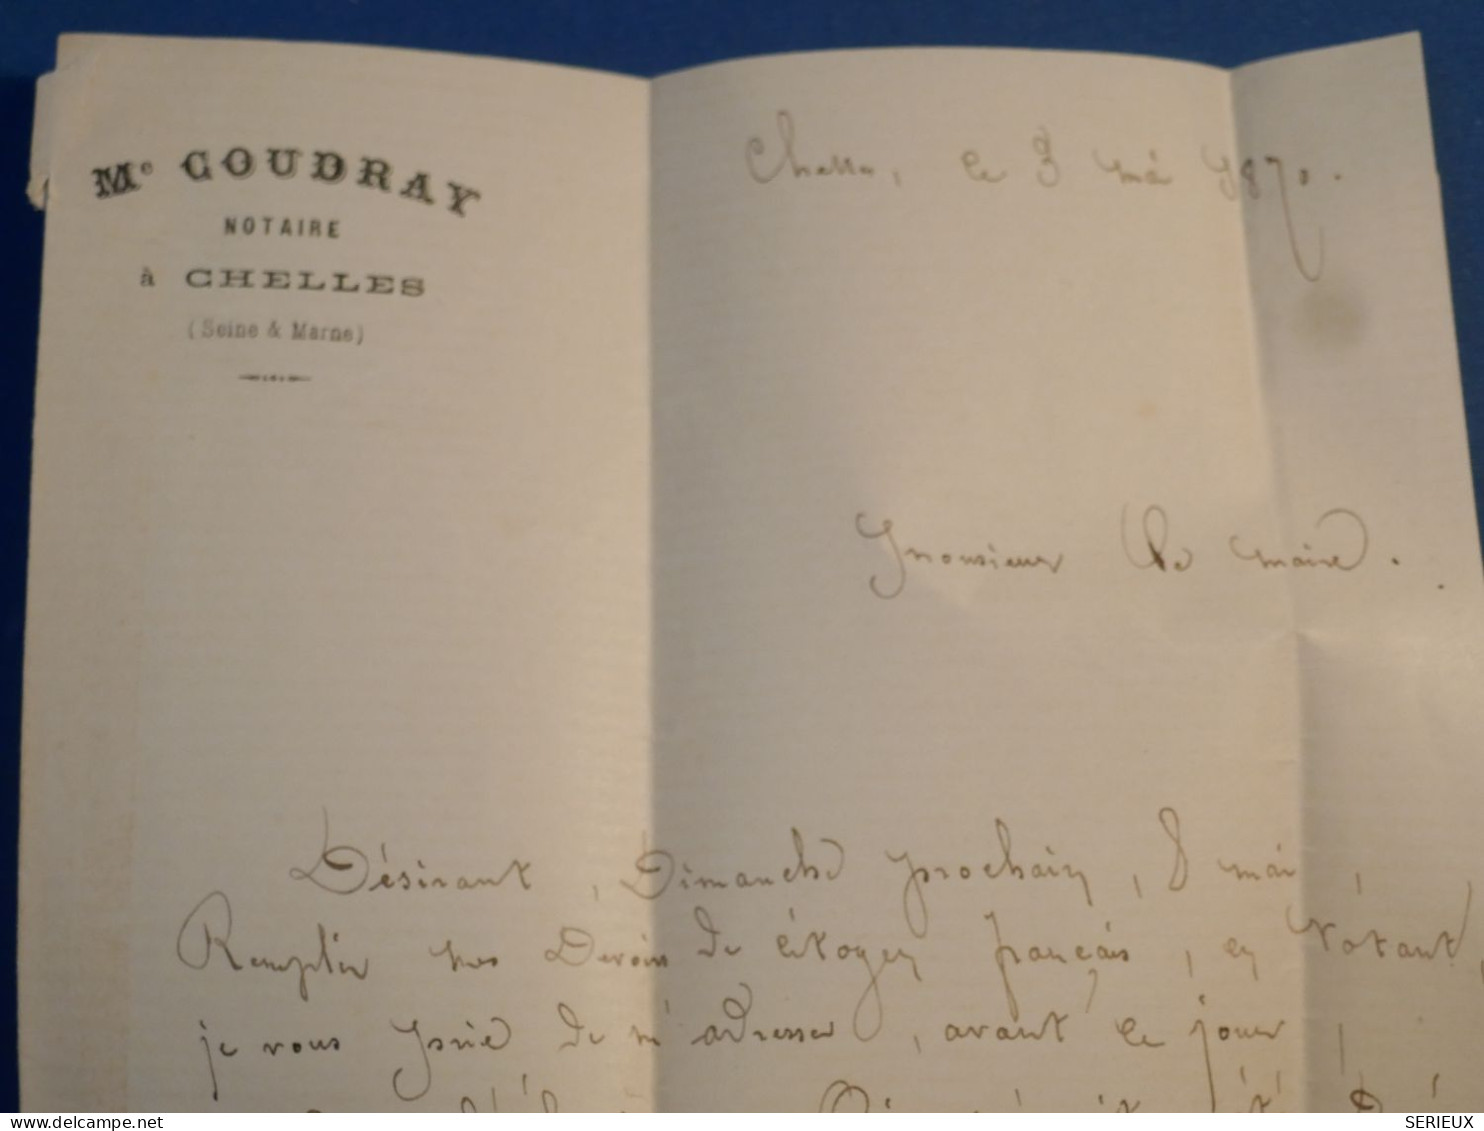 Me COUDRAY
NOTAIRE
à CHELLES
(Seine & Marne)
Chelles, le 3 mai 1870.
Monsieur le maire.
Désirant, Dimanche prochain, 8 mai,
Remplir mes Devoirs de citoyen français, en votant,
je vous prie de m'adresser, avant ce jour,
delcampe.net
SERIEUX